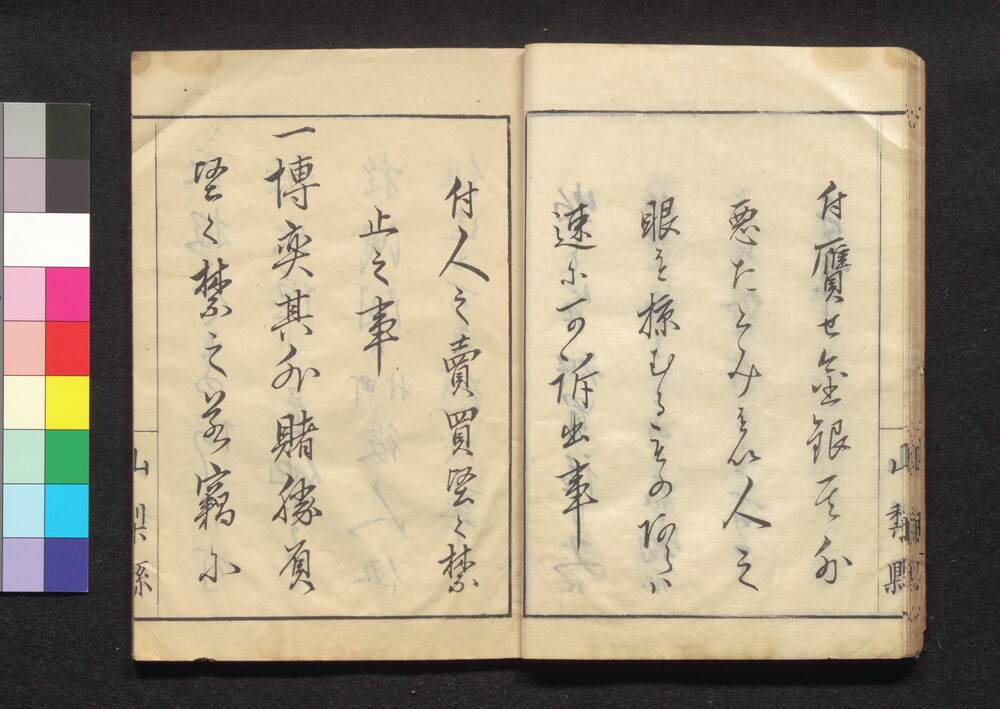 付贋せ金銀其外
悪たくみを以人之
眼を掠むるもの阿らハ
速に可訴出事
付人之賣買堅く禁
止之事
一博奕其外賭勝負
堅く禁之若竊に
山梨縣
山梨縣